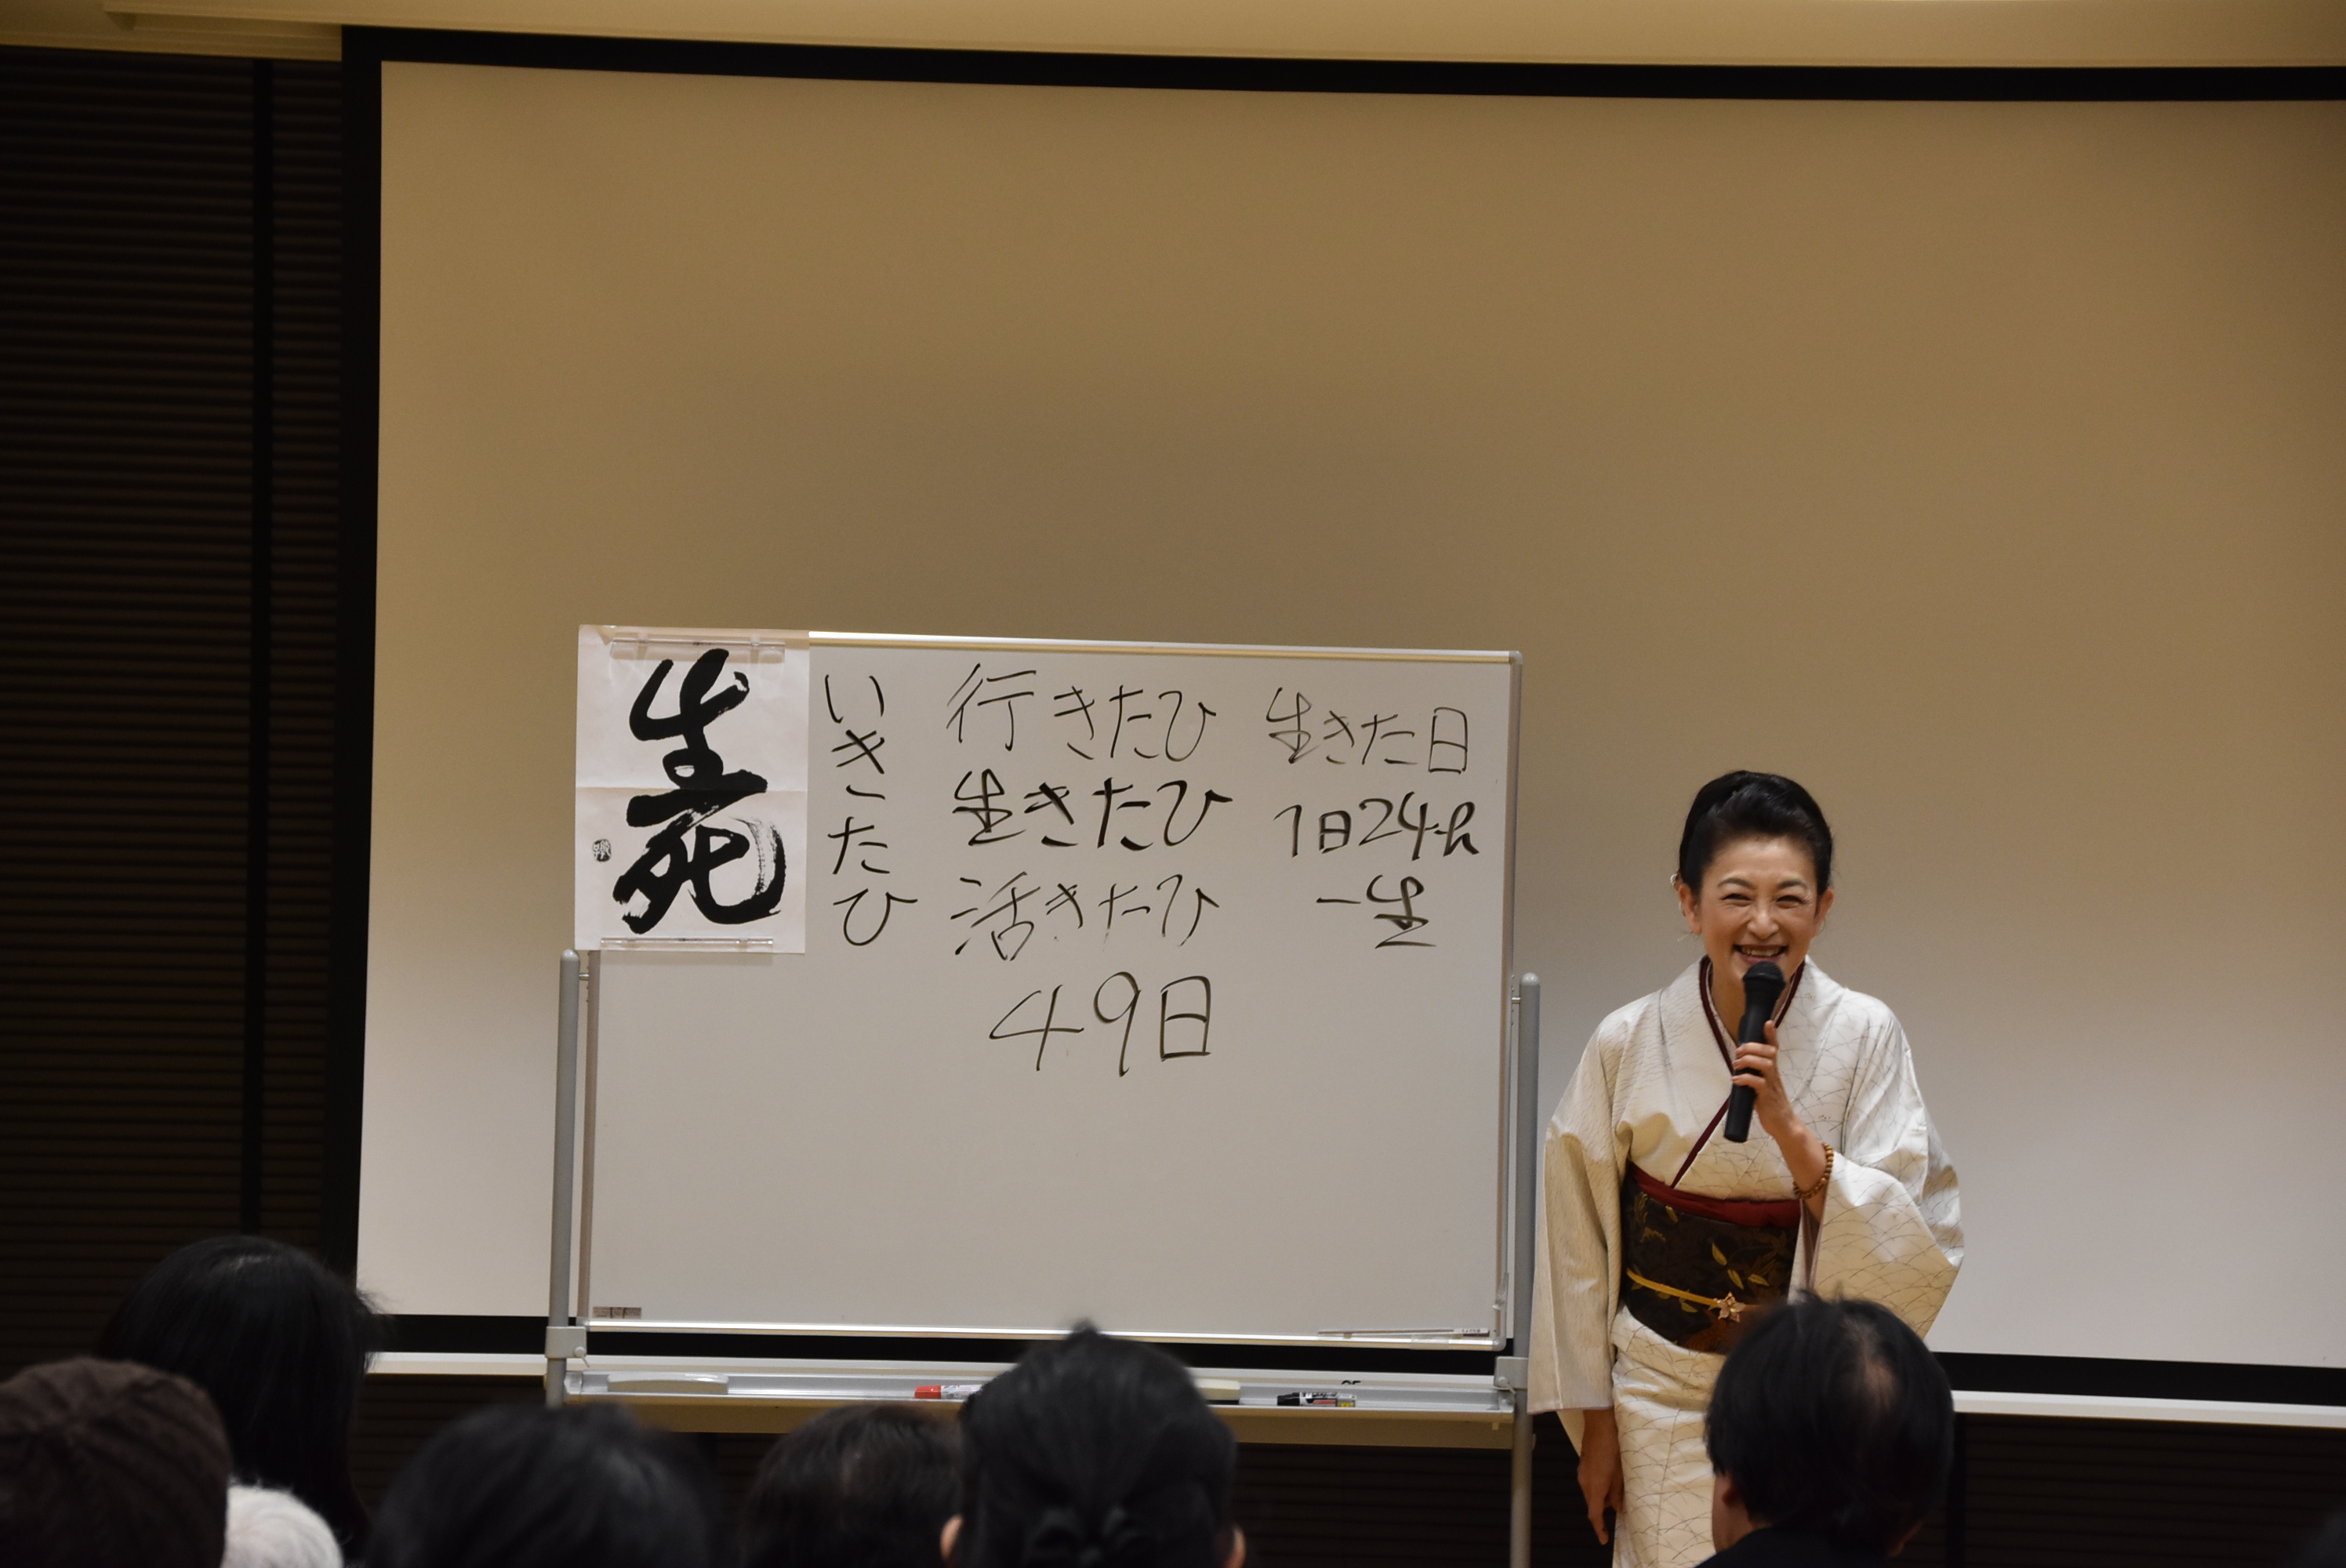 生死
いきたひ
行きたひ
生きたひ
活きたひ
49日
生きた日
1日24h
一生